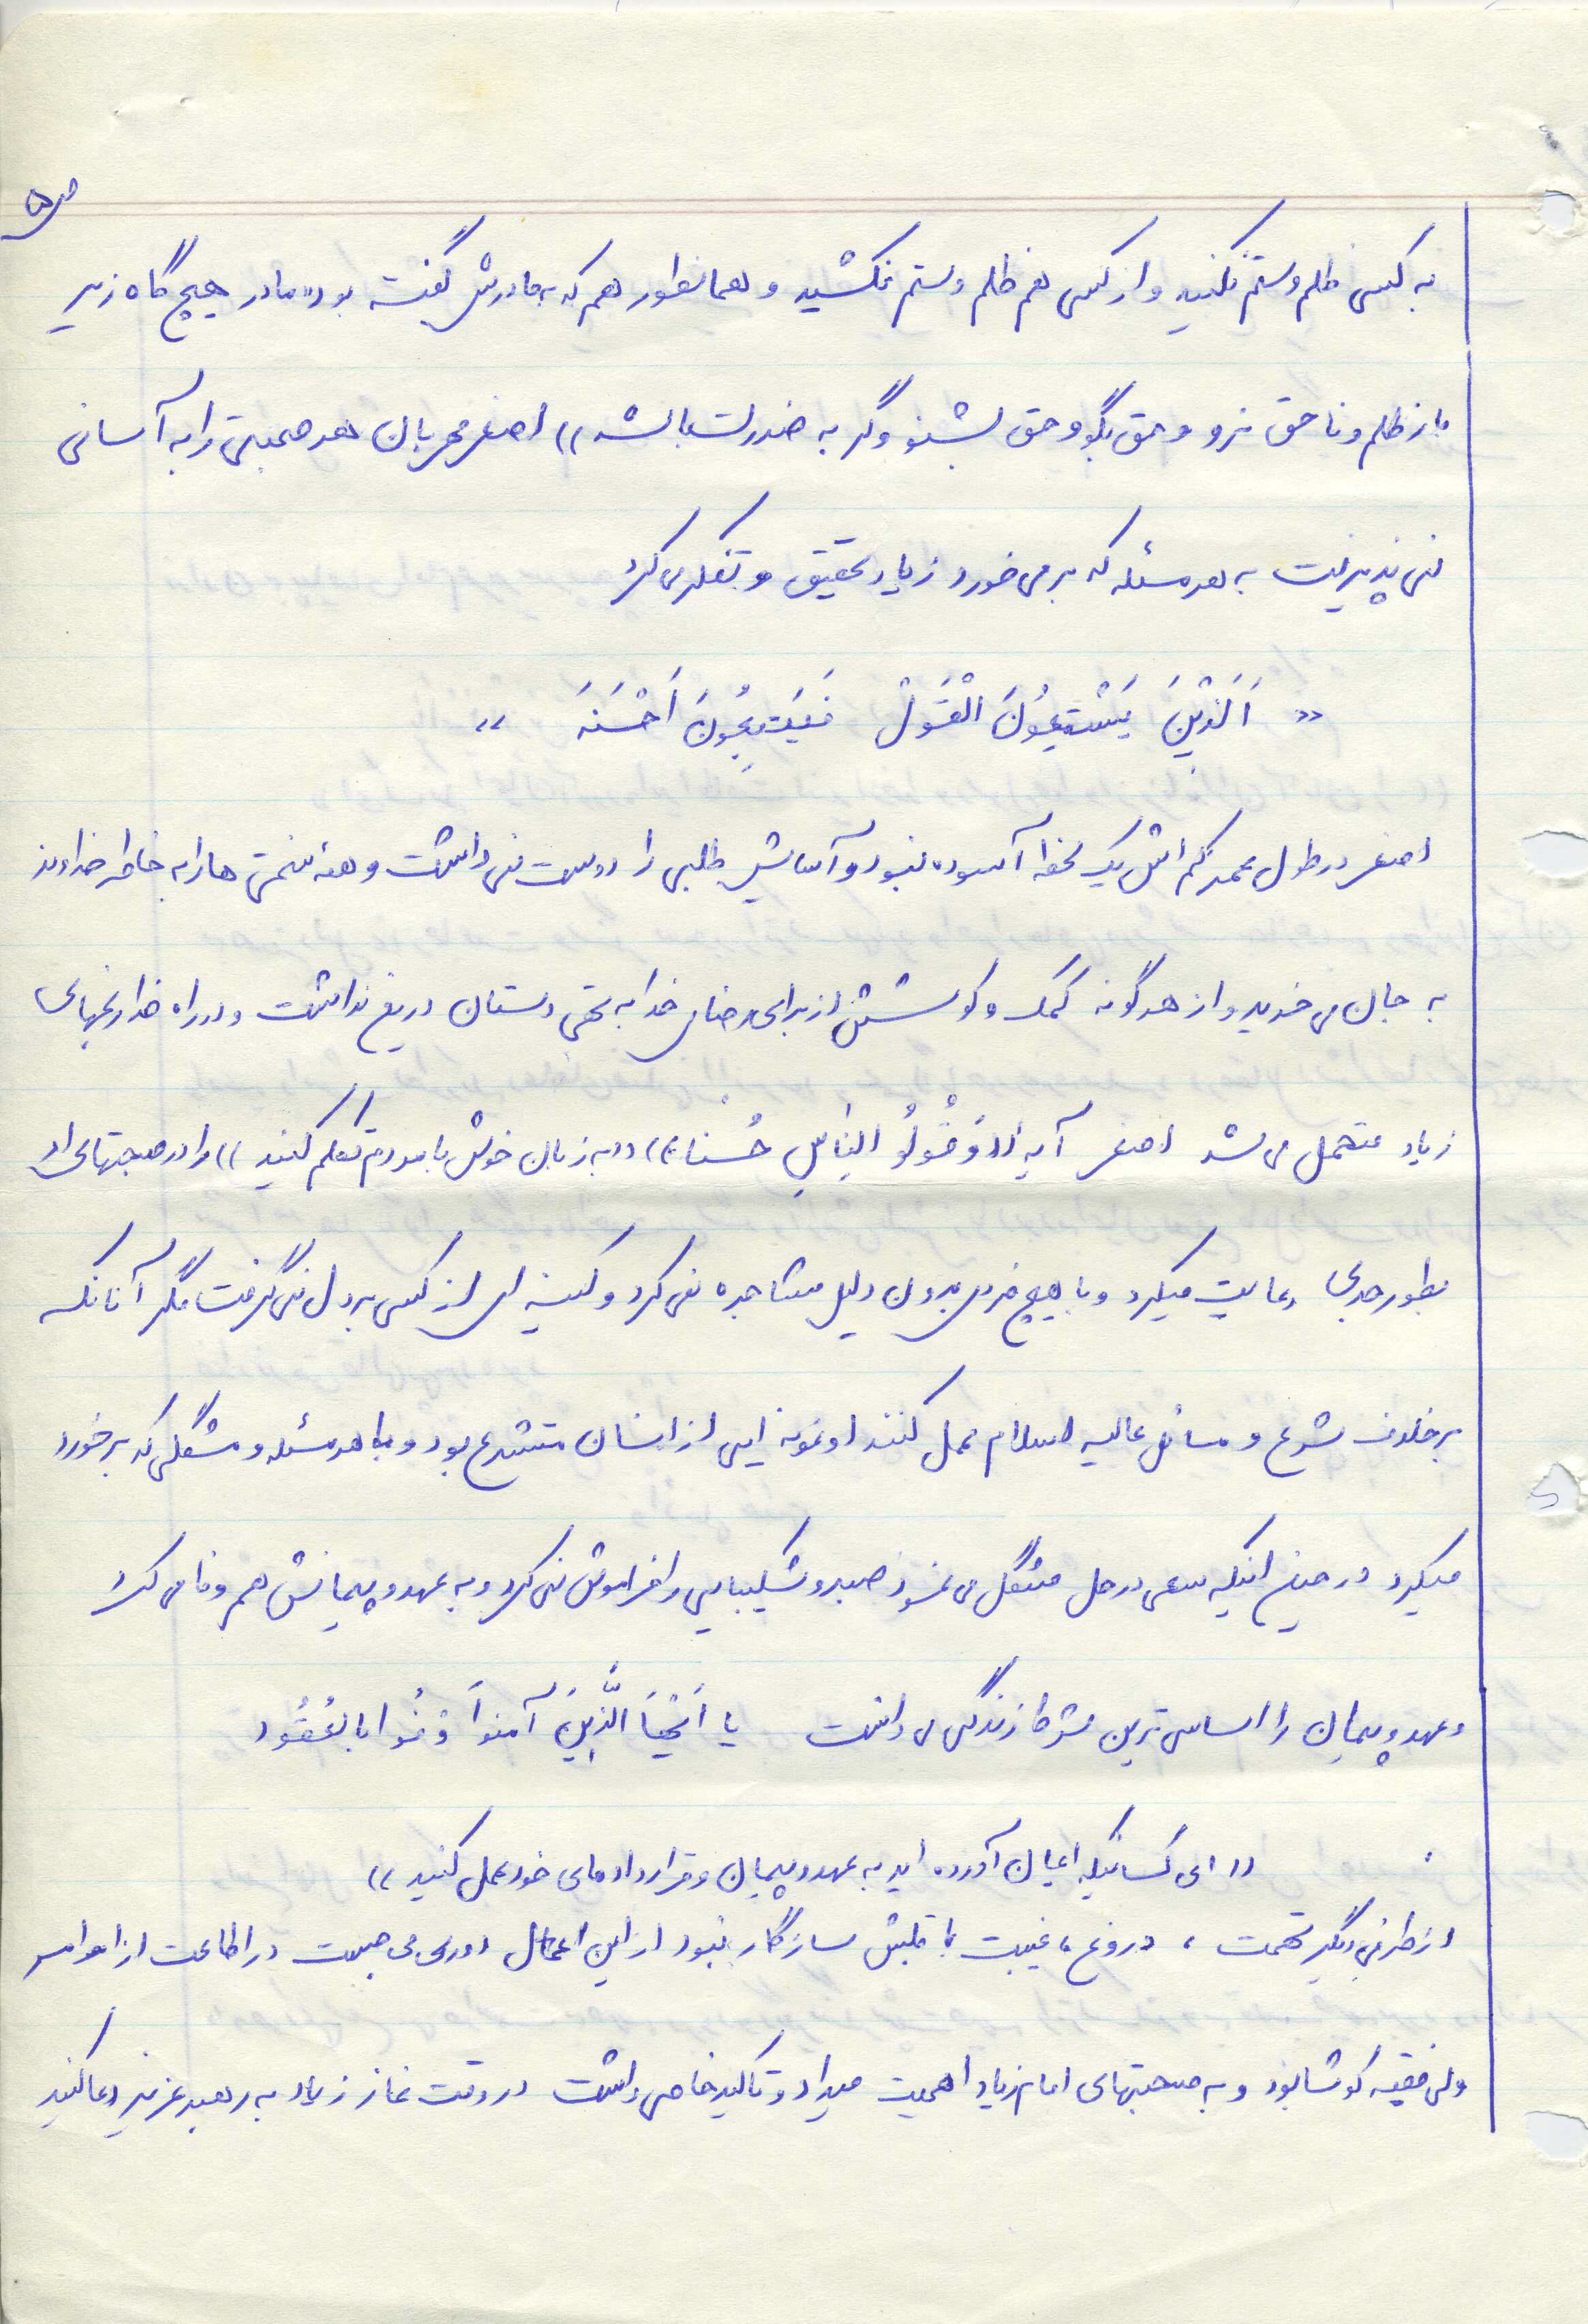 ص۵
به کسی ظلم و ستم نکنید و از کسی هم ظلم و ستم نکشید و همانطور هم که به مادرش گفته بود «مادر هیچ گاه زیر
بار ظلم و ناحق نرو و حق بگو و حق بشنو و گر به ضررت باشد» اصغر مهربان هر صحبتی را به آسانی
نمی پذیرفت به هر مسئله که بر می خورد زیاد تحقیق و تفکر می کرد
«اَلَّذْینَ یَسْتَمِعُونَ الْقَوْلْ فَیَتَبِعُونَ اَحْسَنَه»
اصغر در طول عمر کم اش یک لحظه آسوده نبود و آسایش طلبی را دوست نمی داشت و همه سختی ها را به خاطر خداوند
به جان می خرید و از هر گونه کمک و کوشش از برای رضای خدا به تهی دستان دریغ نداشت و در راه خدا رنجهای
زیاد متحمل می شد اصغر آیه «وَقُولُو الِنٰاسِ حُسْنا» «به زبان خوش با مردم تکلم کنید» را در صحبتهای او
بطور جدی رعایت میکرد و با هیچ فردی بدون دلیل مشاجره نمی کرد و کینه ای از کسی به دل نمی گرفت مگر آنانکه
بر خلاف شرع و مسائل عالیه اسلام عمل کنند او نمونه ایی از انسان متشرع بود و با هر مسئله و مشگلی که برخورد
میکرد در حین اینکه سعی در حل مشگل می نمود صبر و شکیبایی را فراموش نمی کرد و به عهد و پیمانش هم وفا می کرد
و عهد و پیمان را اساسی ترین شرط زندگی می دانست یا اَیُّهَا الَّذِینَ آمَنواَ وْفُوا بالعُقُود
«ای کسانیکه ایمان آورده اید به عهد و پیمان و قراردادهای خود عمل کنید»
از طرفی دیگر تهمت ، دروغ ، غیبت با قلبش سازگار نبود از این اعمال دوری می جست در اطاعت از اوامر
ولی فقیه کوشا بود و به صحبتهای امام زیاد اهمیت میداد و تاکید خاصی داشت در وقت نماز زیاد به رهبر عزیز دعا کنید